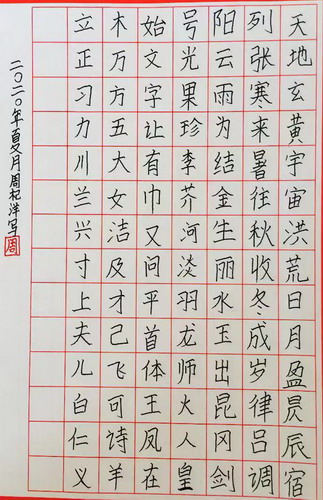 天地玄黄宇宙洪荒日月盈昃辰宿
列张寒来暑往秋收冬成岁律吕调
阳云雨为结金生丽水玉出昆冈剑
号光果珍李芥河淡羽龙师火人皇
始文字让有巾又问平首体王凤在
木万方五大女洁及才己飞可诗羊
立正习力川兰兴寸上夫儿白仁义
二〇二〇年夏月周杞洋写
周